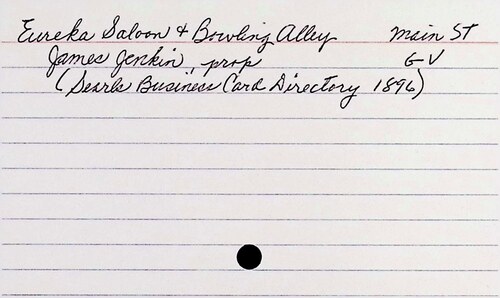 Eureka Saloon & Bowling Alley Main ST
James Jenkin, prop G V
(Searls Business Card Directory 1896)